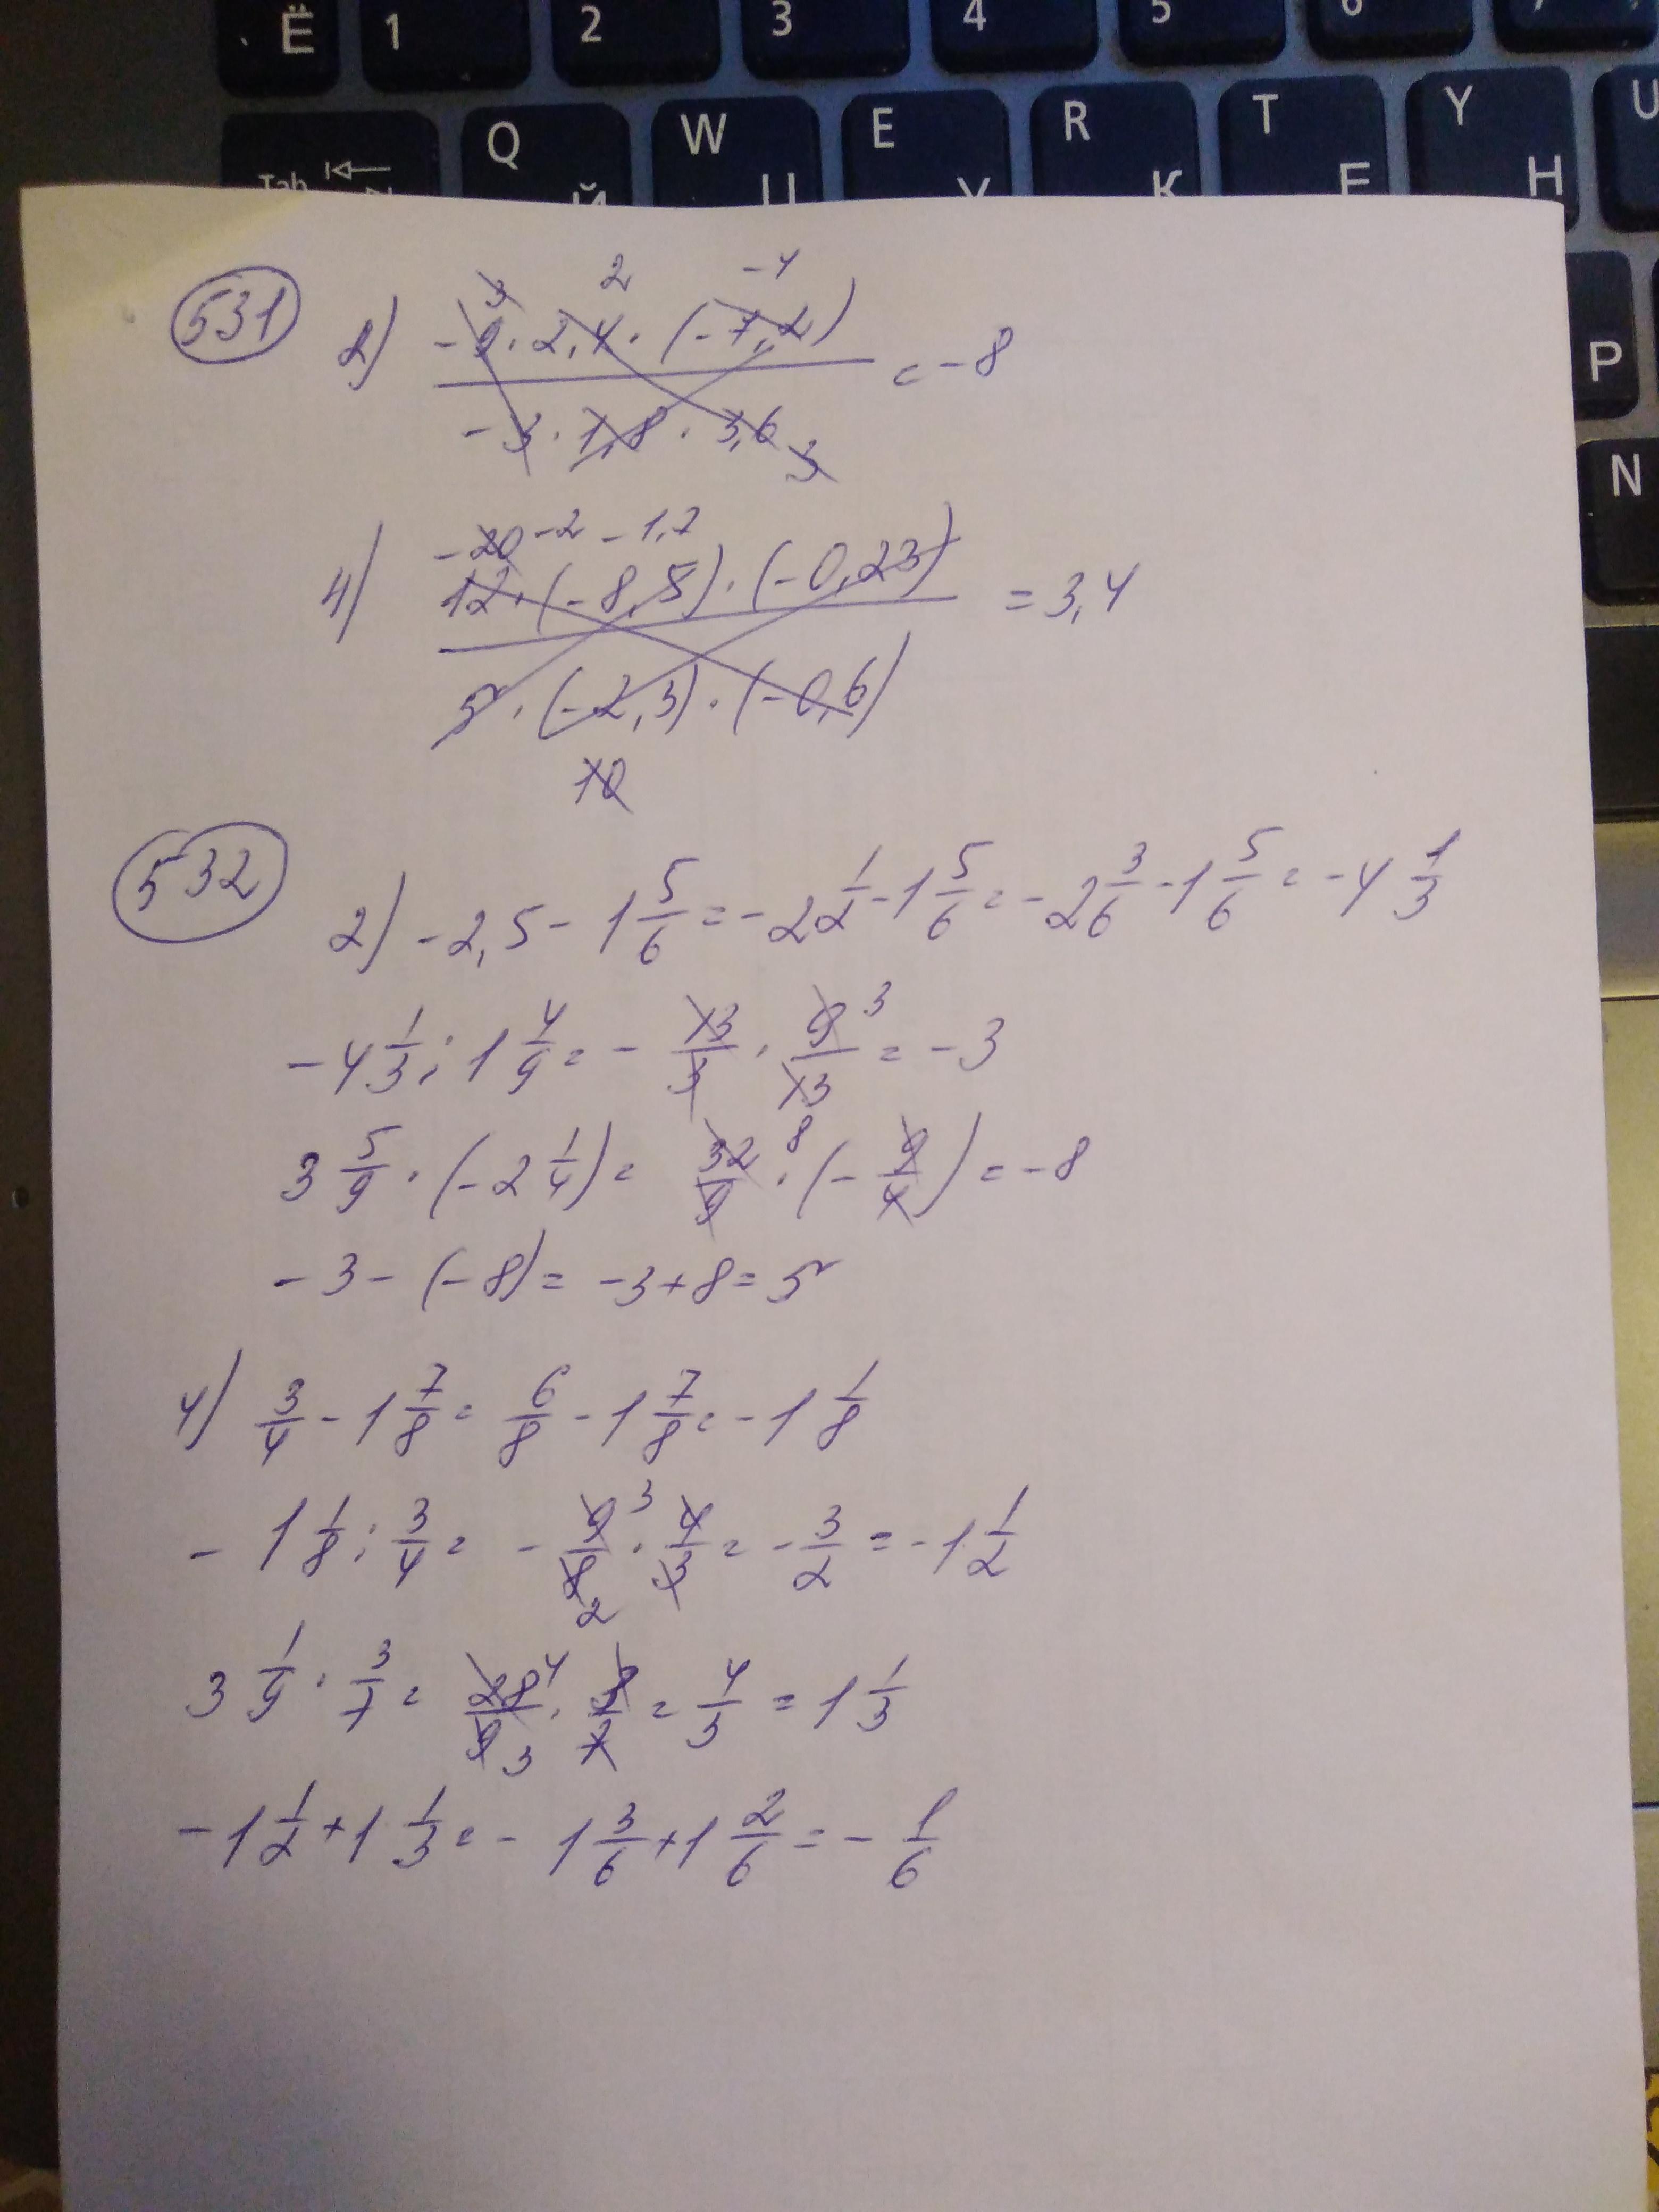 Ё 1 2 3 4 5 6
Tab Q W E R T Y U
Й У К Е Н
P
N
531
2) (-9 · 2,4 · (-7,2)) / (-3 · 1,8 · 3,6) = -8
3 2 -4
3
4) (12 · (-8,5) · (-0,23)) / (5 · (-2,3) · (-0,6)) = 3,4
-20 -2 -1,7
10
532
2) -2,5 - 1 5/6 = -2 1/2 - 1 5/6 = -2 3/6 - 1 5/6 = -4 1/3
-4 1/3 : 1 4/9 = - 13/3 · 9/13 3 = -3
3 5/9 · (-2 1/4) = 32/9 8 · (- 9/4) = -8
-3 - (-8) = -3 + 8 = 5
4) 3/4 - 1 7/8 = 6/8 - 1 7/8 = -1 1/8
- 1 1/8 : 3/4 = - 9/8 3 · 4/3 = - 3/2 = -1 1/2
2
3 1/9 · 3/7 = 28/9 4 · 3/7 = 4/3 = 1 1/3
3
-1 1/2 + 1 1/3 = - 1 3/6 + 1 2/6 = - 1/6